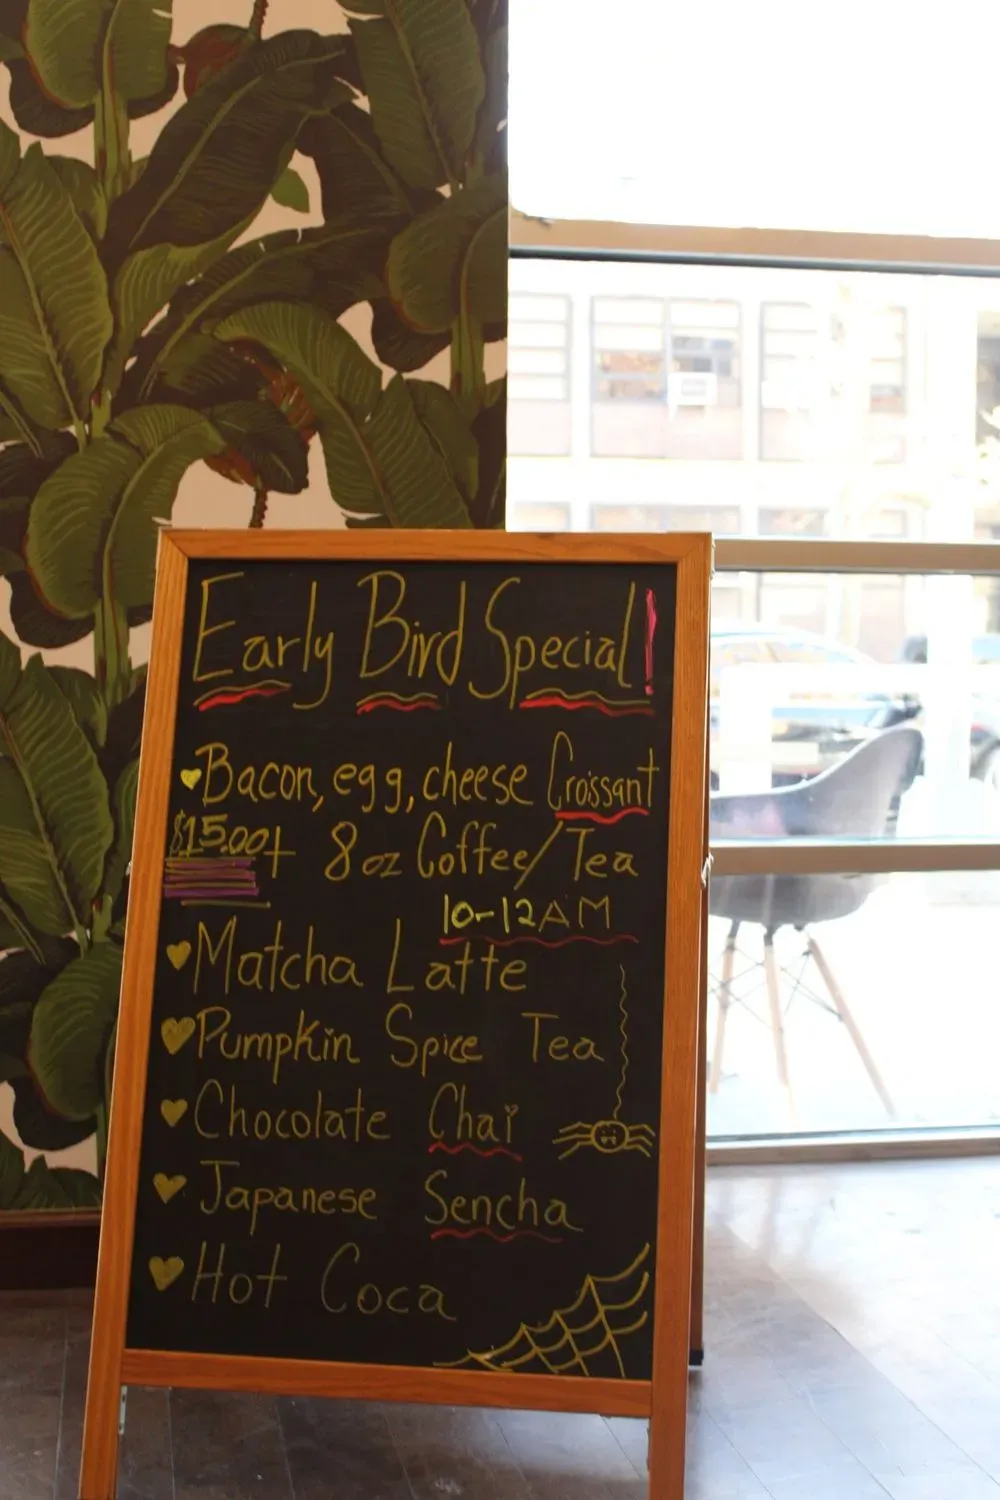 Early Bird Special!
Bacon, egg, cheese Croissant
$15.00 + 8 oz Coffee/Tea
10-12 AM
Matcha Latte
Pumpkin Spice Tea
Chocolate Chai
Japanese Sencha
Hot Coca